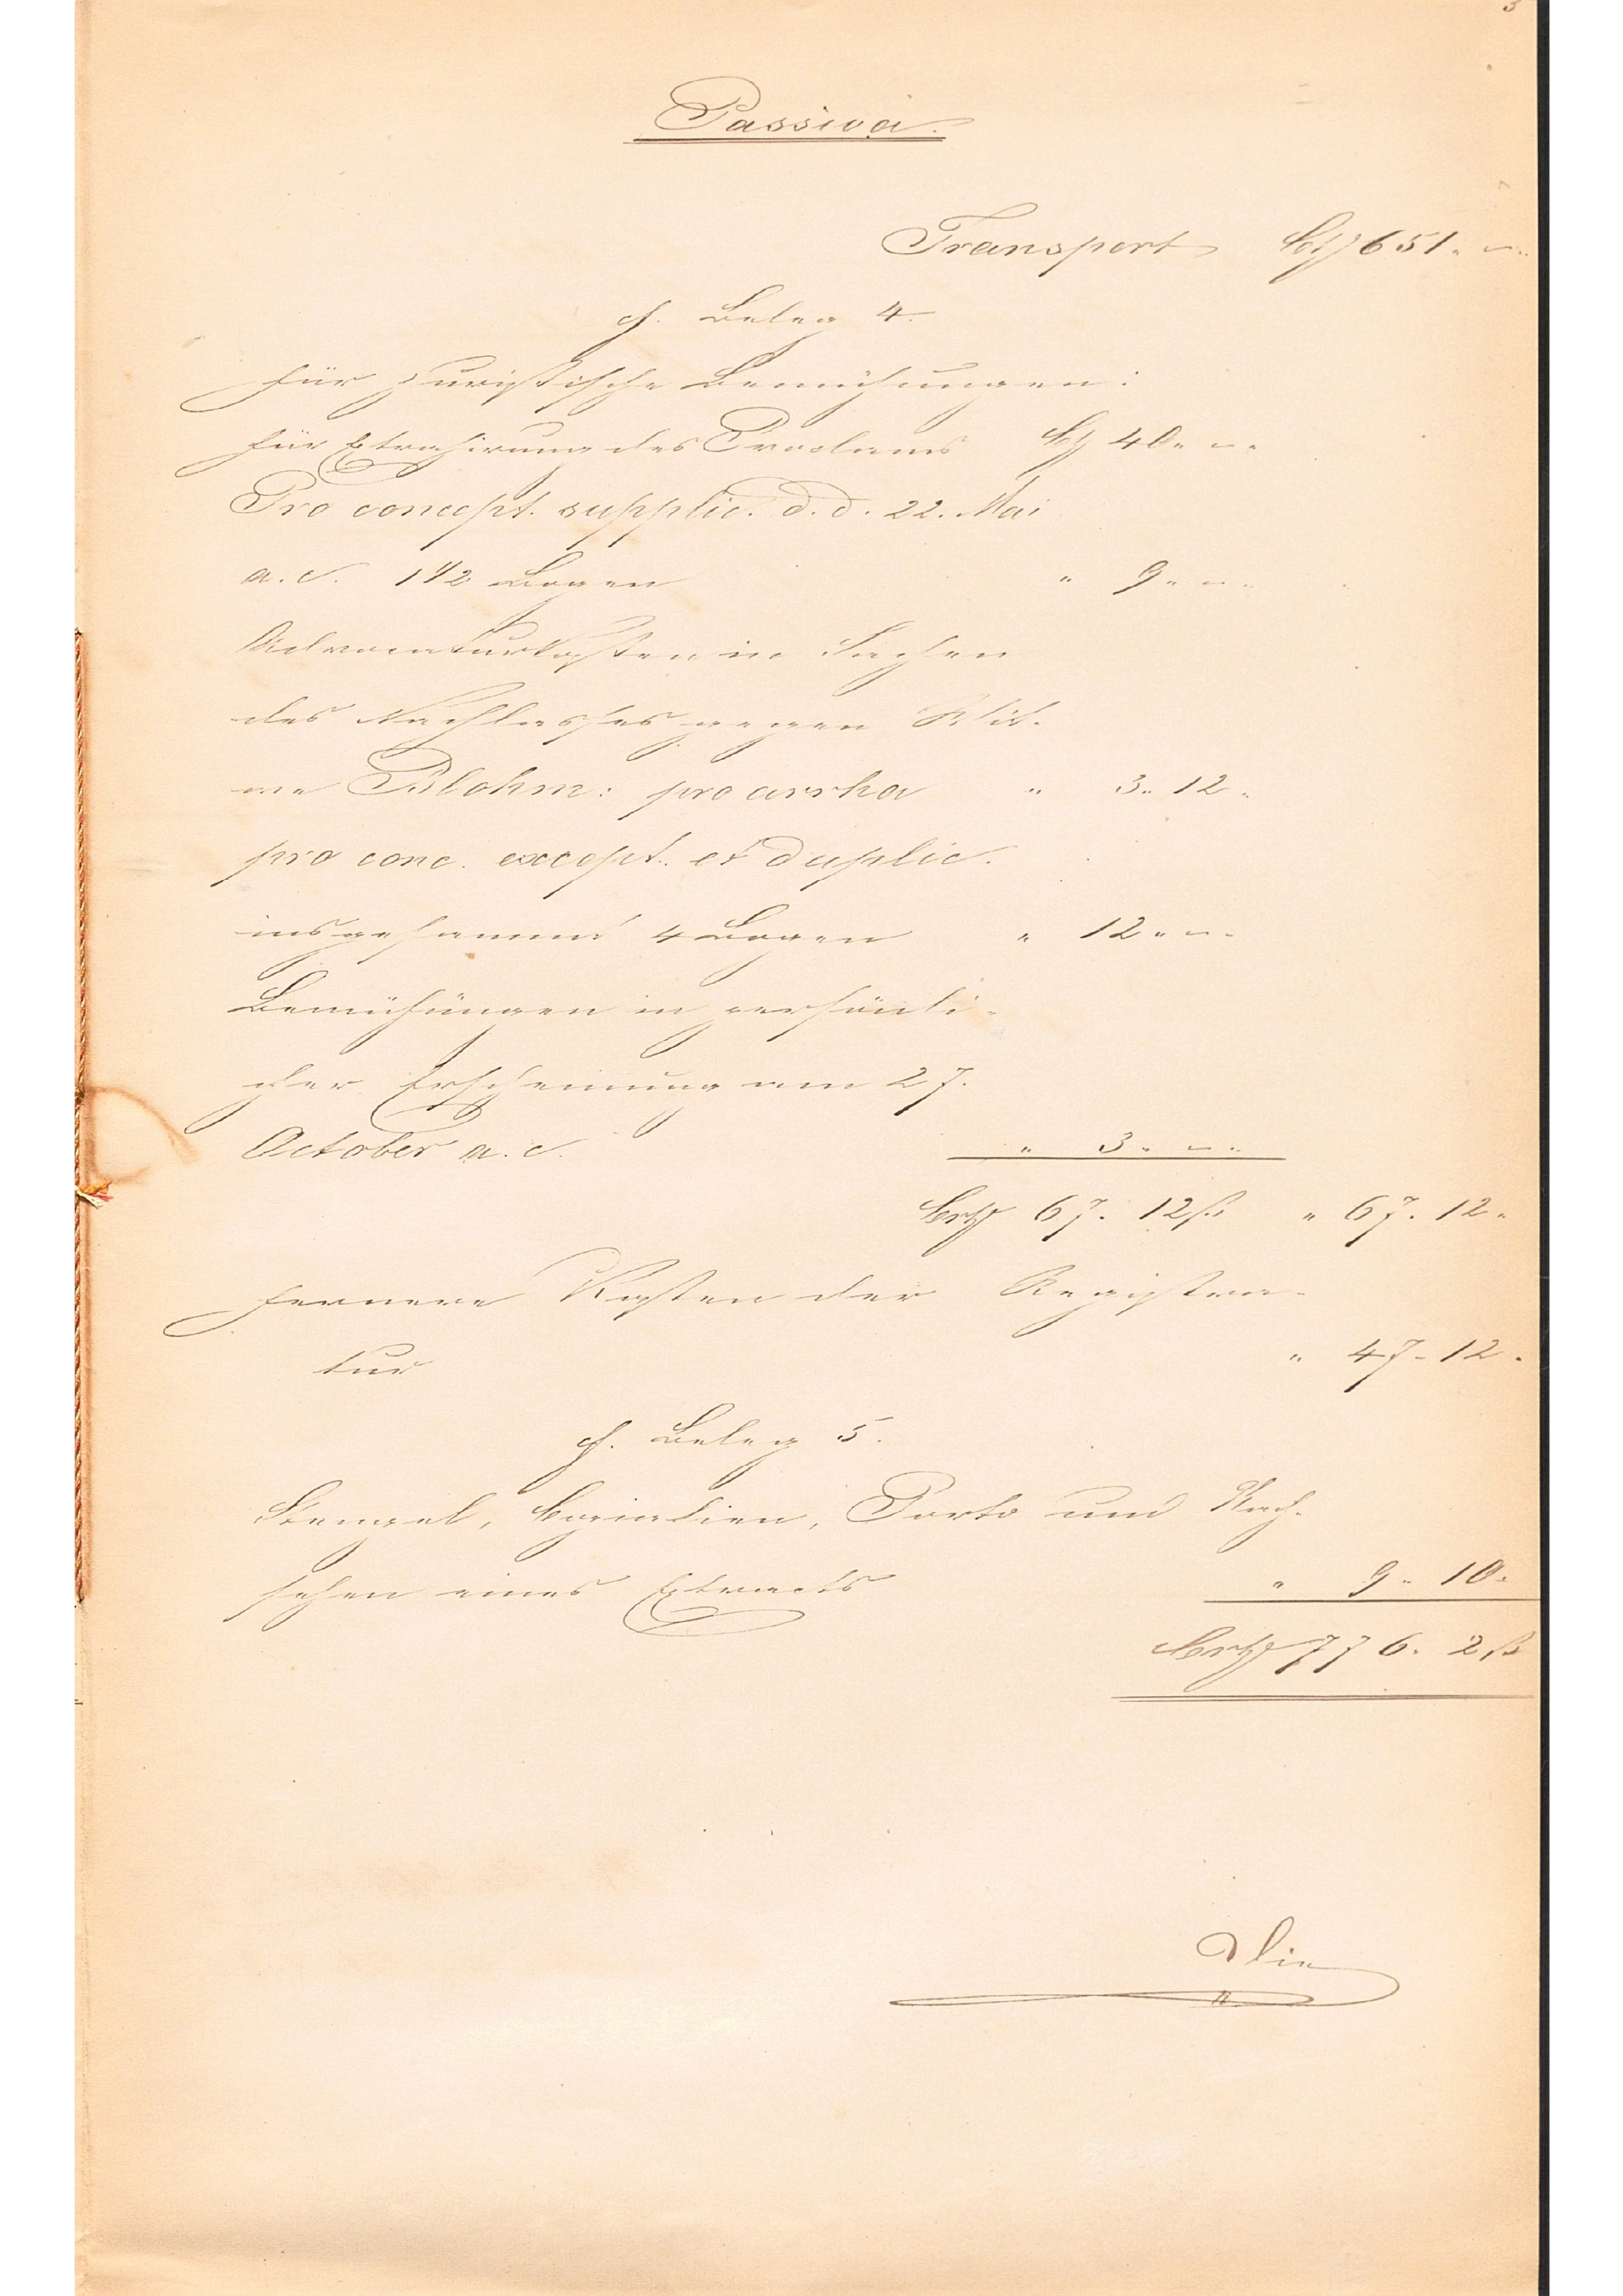 3
Passiva.
Transport Crt 651. -
cf. Beleg 4.
für juristische Bemühungen:
für Extrahirung des Proclams Crt 40. -
Pro concept. supplic. d. d. 22. Mai
a. c. 1 1/2 Bogen " 9. -
Advocaturkosten in Sachen
des Nachlasses gegen Wit-
we Blohm: pro arrha " 3. 12.
pro conc. except. et duplic.
insgesammt 4 Bogen " 12. -
Bemühungen in persönli-
cher Erscheinung am 27.
October a. c. " 3. -
Crt 67. 12 ß " 67. 12.
fernere Kosten der Registra-
tur " 47. 12.
cf. Beleg 5.
Stempel, Copialien, Porto und Nach-
sehen eines Extracts " 9. 10.
Crt 776. 2 ß
Die